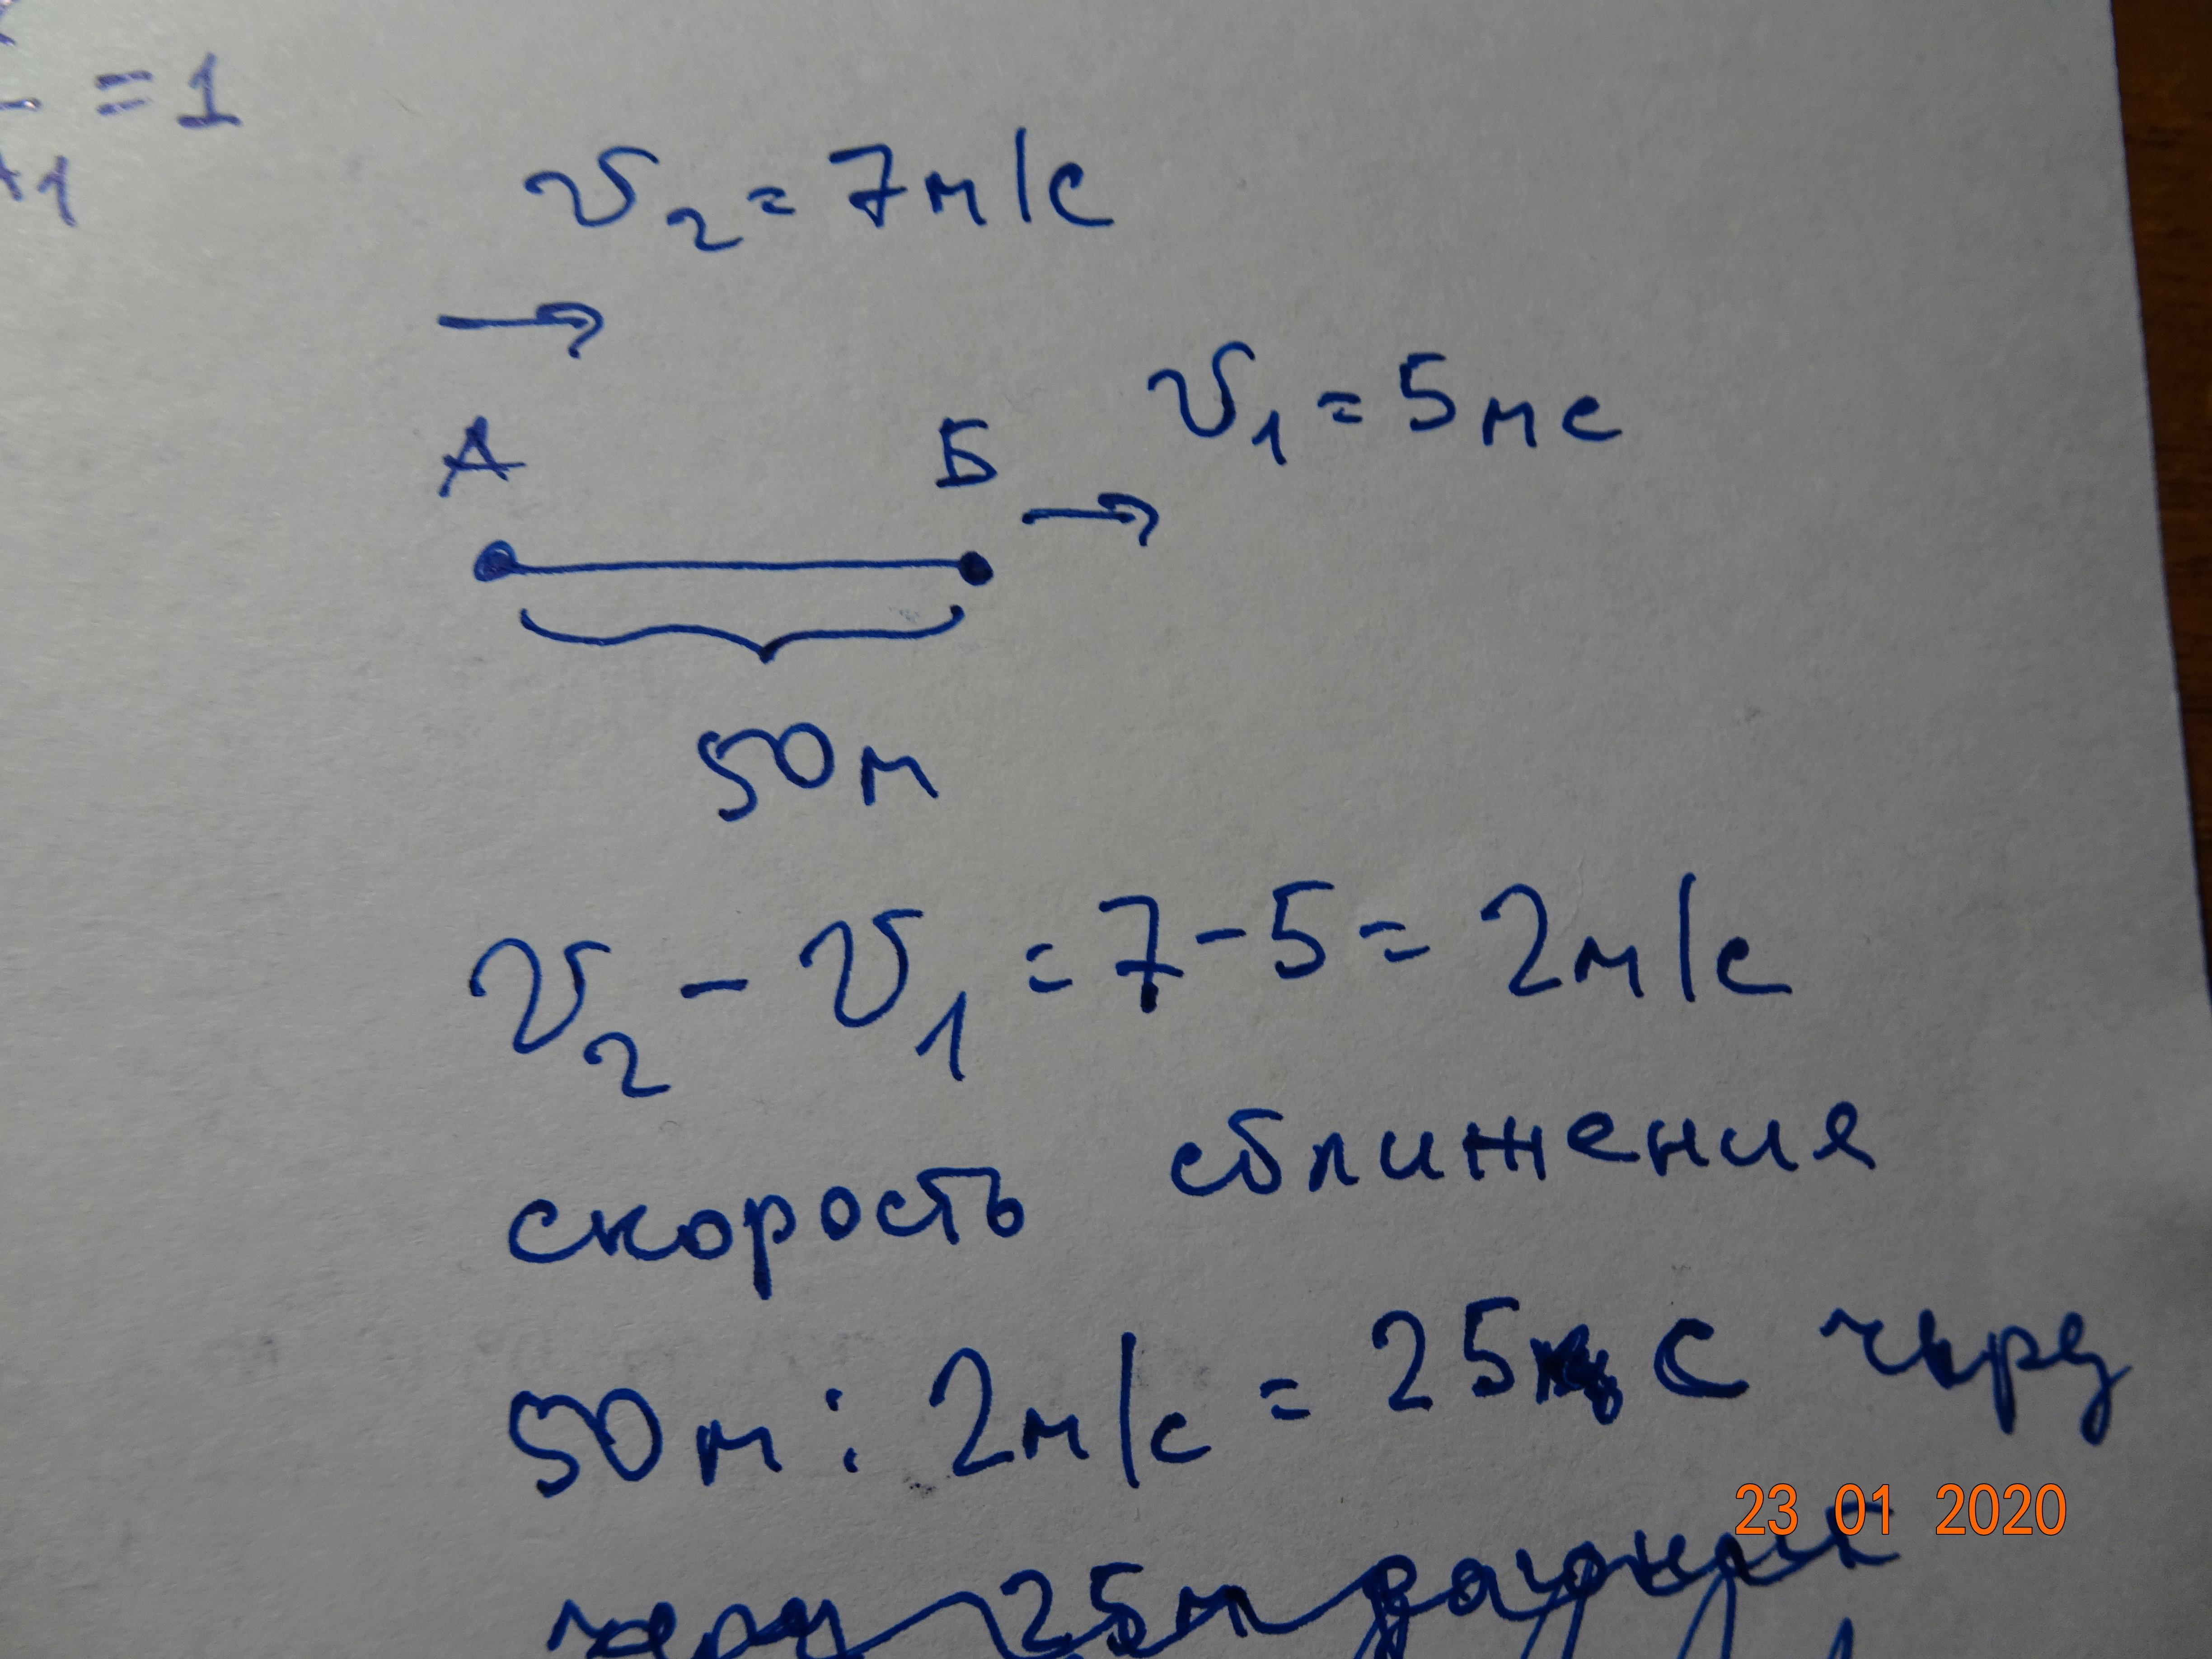 = 1
1
v₂ = 7м/с
А Б v₁ = 5 мс
50 м
v₂ - v₁ = 7 - 5 = 2м/с
скорость сближения
50 м : 2м/с = 25 с
23 01 2020
25 м догонит